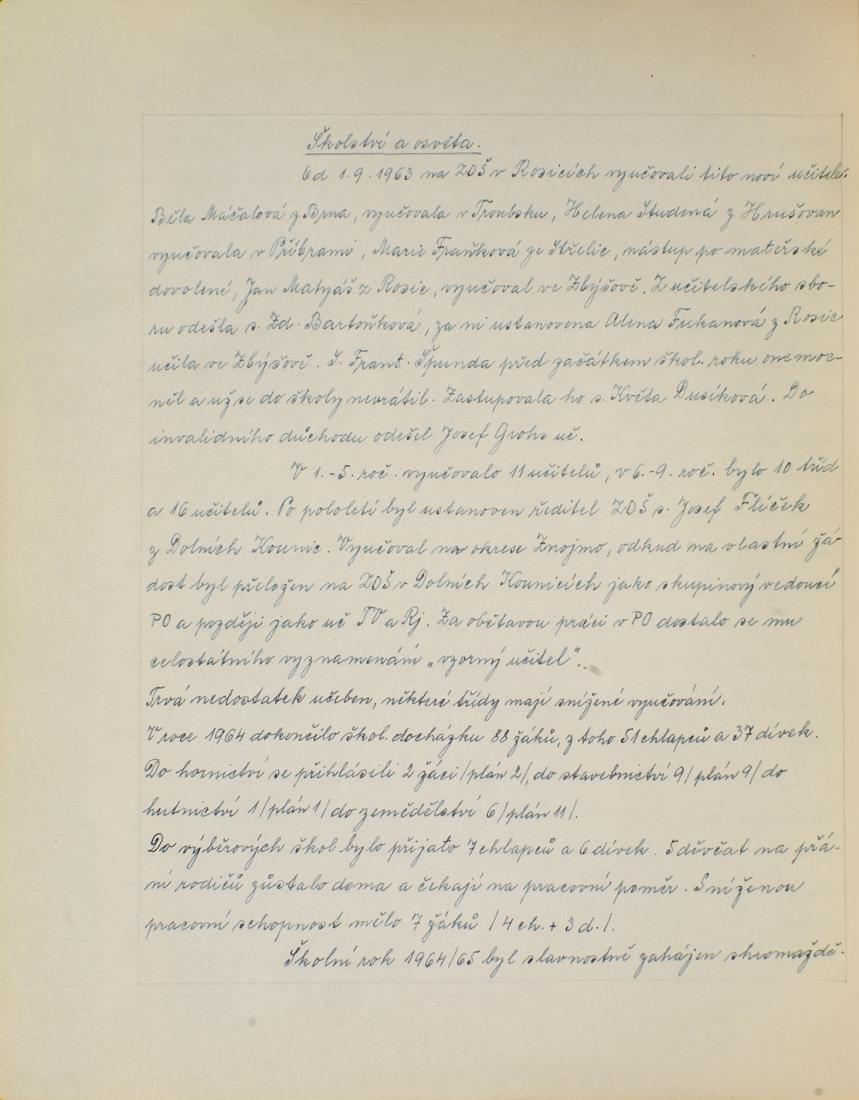 Školství a osvěta.
Od 1.9.1963 na ZDŠ v Rosicích vyučovali tito noví učitelé:
Běla Máčalová z Brna, vyučovala v Troubsku, Helena Studená z Hrušovan
vyučovala v Příbrami, Marie Fraňková ze Střelic, nástup po mateřské
dovolené, Jan Matyáš z Rosic, vyučoval ve Zbýšově. Z učitelského sbo-
ru odešla s. Zd. Bartoňková, za ni ustanovena Alena Fukanová z Rosic
učila ve Zbýšově. S. Frant. Špunda před začátkem škol. roku onemoc-
něl a už se do školy nevrátil. Zastupovala ho s. Květa Dusíková. Do
invalidního důchodu odešel Josef Grohs uč.
V 1.-5. roč. vyučovalo 11 učitelů, v 6.-9. roč. bylo 10 tříd
a 16 učitelů. Po pololetí byl ustanoven ředitel ZDŠ s. Josef Flíček
z Dolních Kounic. Vyučoval na okrese Znojmo, odkud na vlastní žá-
dost byl přeložen na ZDŠ v Dolních Kounicích jako skupinový vedoucí
PO a později jako uč TV a Rj. Za obětavou práci v PO dostalo se mu
celostátního vyznamenání „vzorný učitel".
Trvá nedostatek učeben, některé třídy mají snížené vyučování.
V roce 1964 dokončilo škol. docházku 88 žáků, z toho 51 chlapců a 37 dívek.
Do hornictví se přihlásili 2 žáci /plán 2/, do stavebnictví 9/ plán 9/ do
hutnictví 1/ plán 1/ do zemědělství 6/ plán 11/.
Do výběrových škol bylo přijato 7 chlapců a 6 dívek. 5 děvčat na přá-
ní rodičů zůstalo doma a čekají na pracovní poměr. Sníženou
pracovní schopnost mělo 7 žáků / 4 ch. + 3 d. /.
Školní rok 1964/65 byl slavnostně zahájen shromaždě-